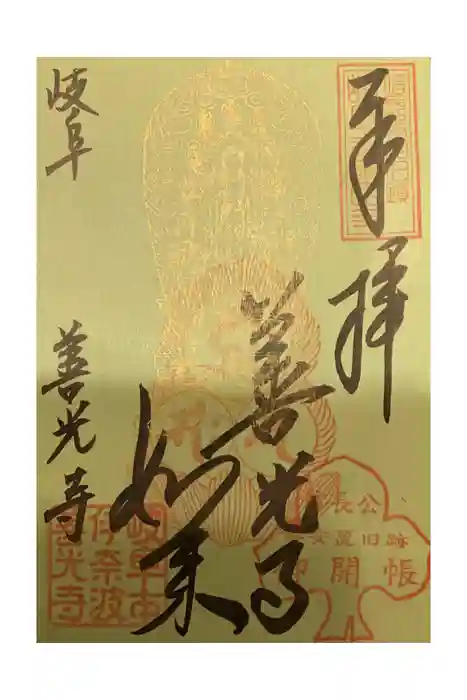 奉拝
善光寺
如来
岐阜
善光寺
岐阜市
伊奈波
善光寺
長公
安置旧跡
御開帳